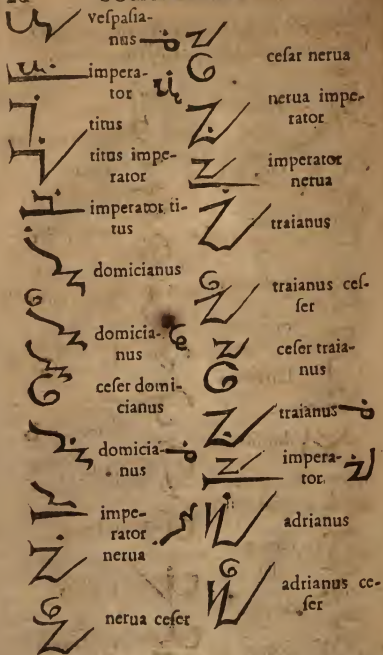 vespasia-
nus
impera-
tor
titus
titus impe-
rator
imperator ti-
tus
domicianus
domicia-
nus
ceser domi-
cianus
domicia-
nus
impe-
rator
nerua
nerua ceser
cesar nerua
nerua impe-
rator
imperator
nerua
traianus
traianus ces-
ser
ceser traia-
nus
traianus
impera-
tor
adrianus
adrianus ce-
ser